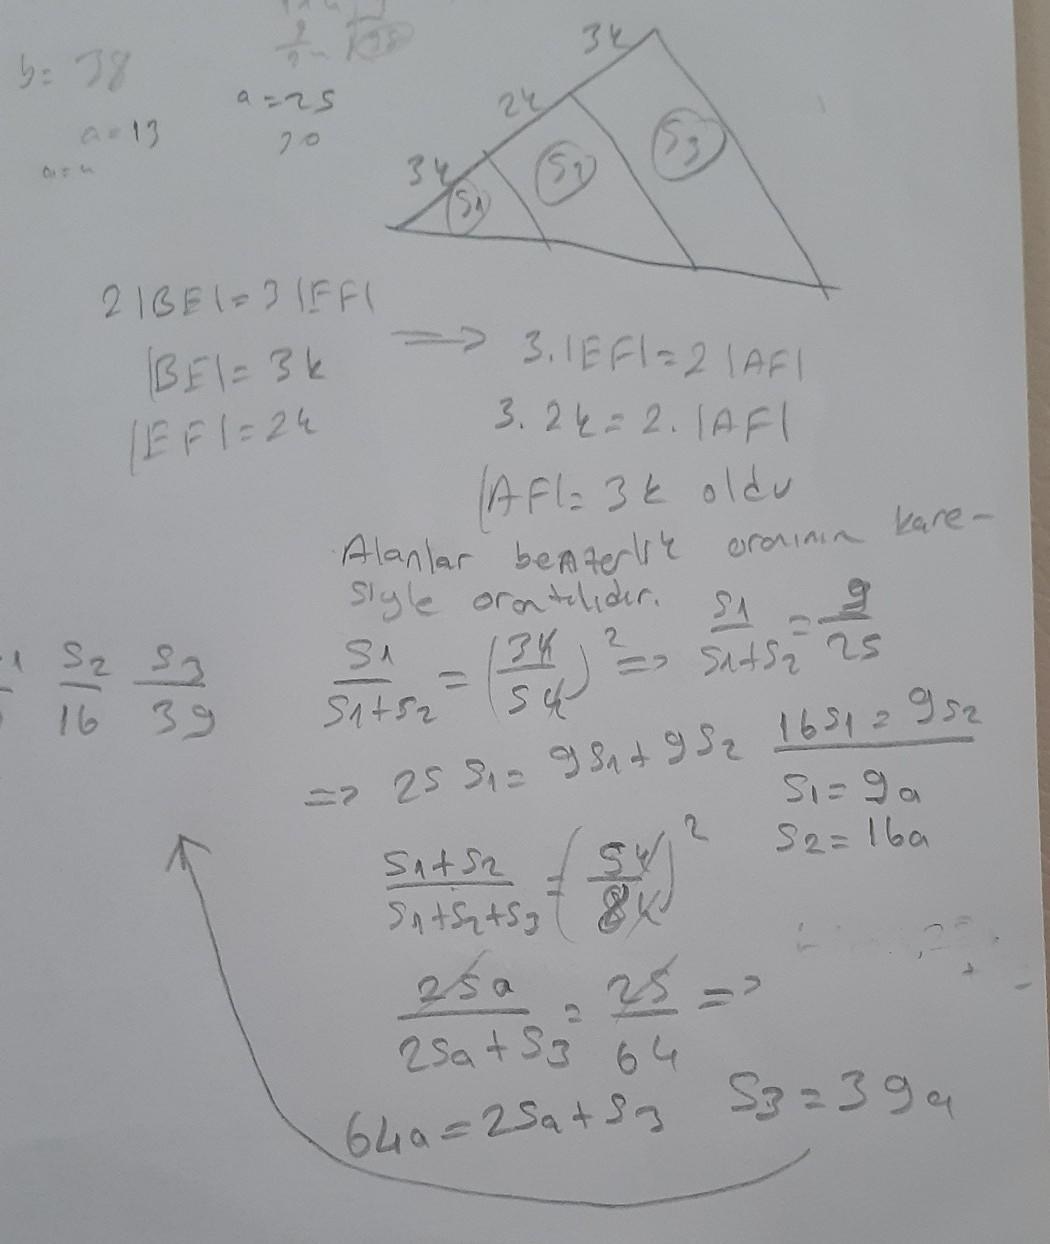 b= 38
a=13
a=25
20
3k
2k
3k
S1
S2
S3
2|BE|=3|EF|
|BE|=3k
|EF|=2k
=> 3.|EF|=2|AF|
3.2k=2.|AF|
|AF|=3k oldu
Alanlar benzerlik oranının kare-
siyle orantılıdır.
S1/(S1+S2) = (3k/5k)² => S1/(S1+S2) = 9/25
=> 25 S1 = 9S1+9S2 16S1=9S2
S1=9a
S2=16a
(S1+S2)/(S1+S2+S3) = (5k/8k)²
25a/(25a+S3) = 25/64 =>
64a=25a+S3 S3=39a
S2/16 S3/39